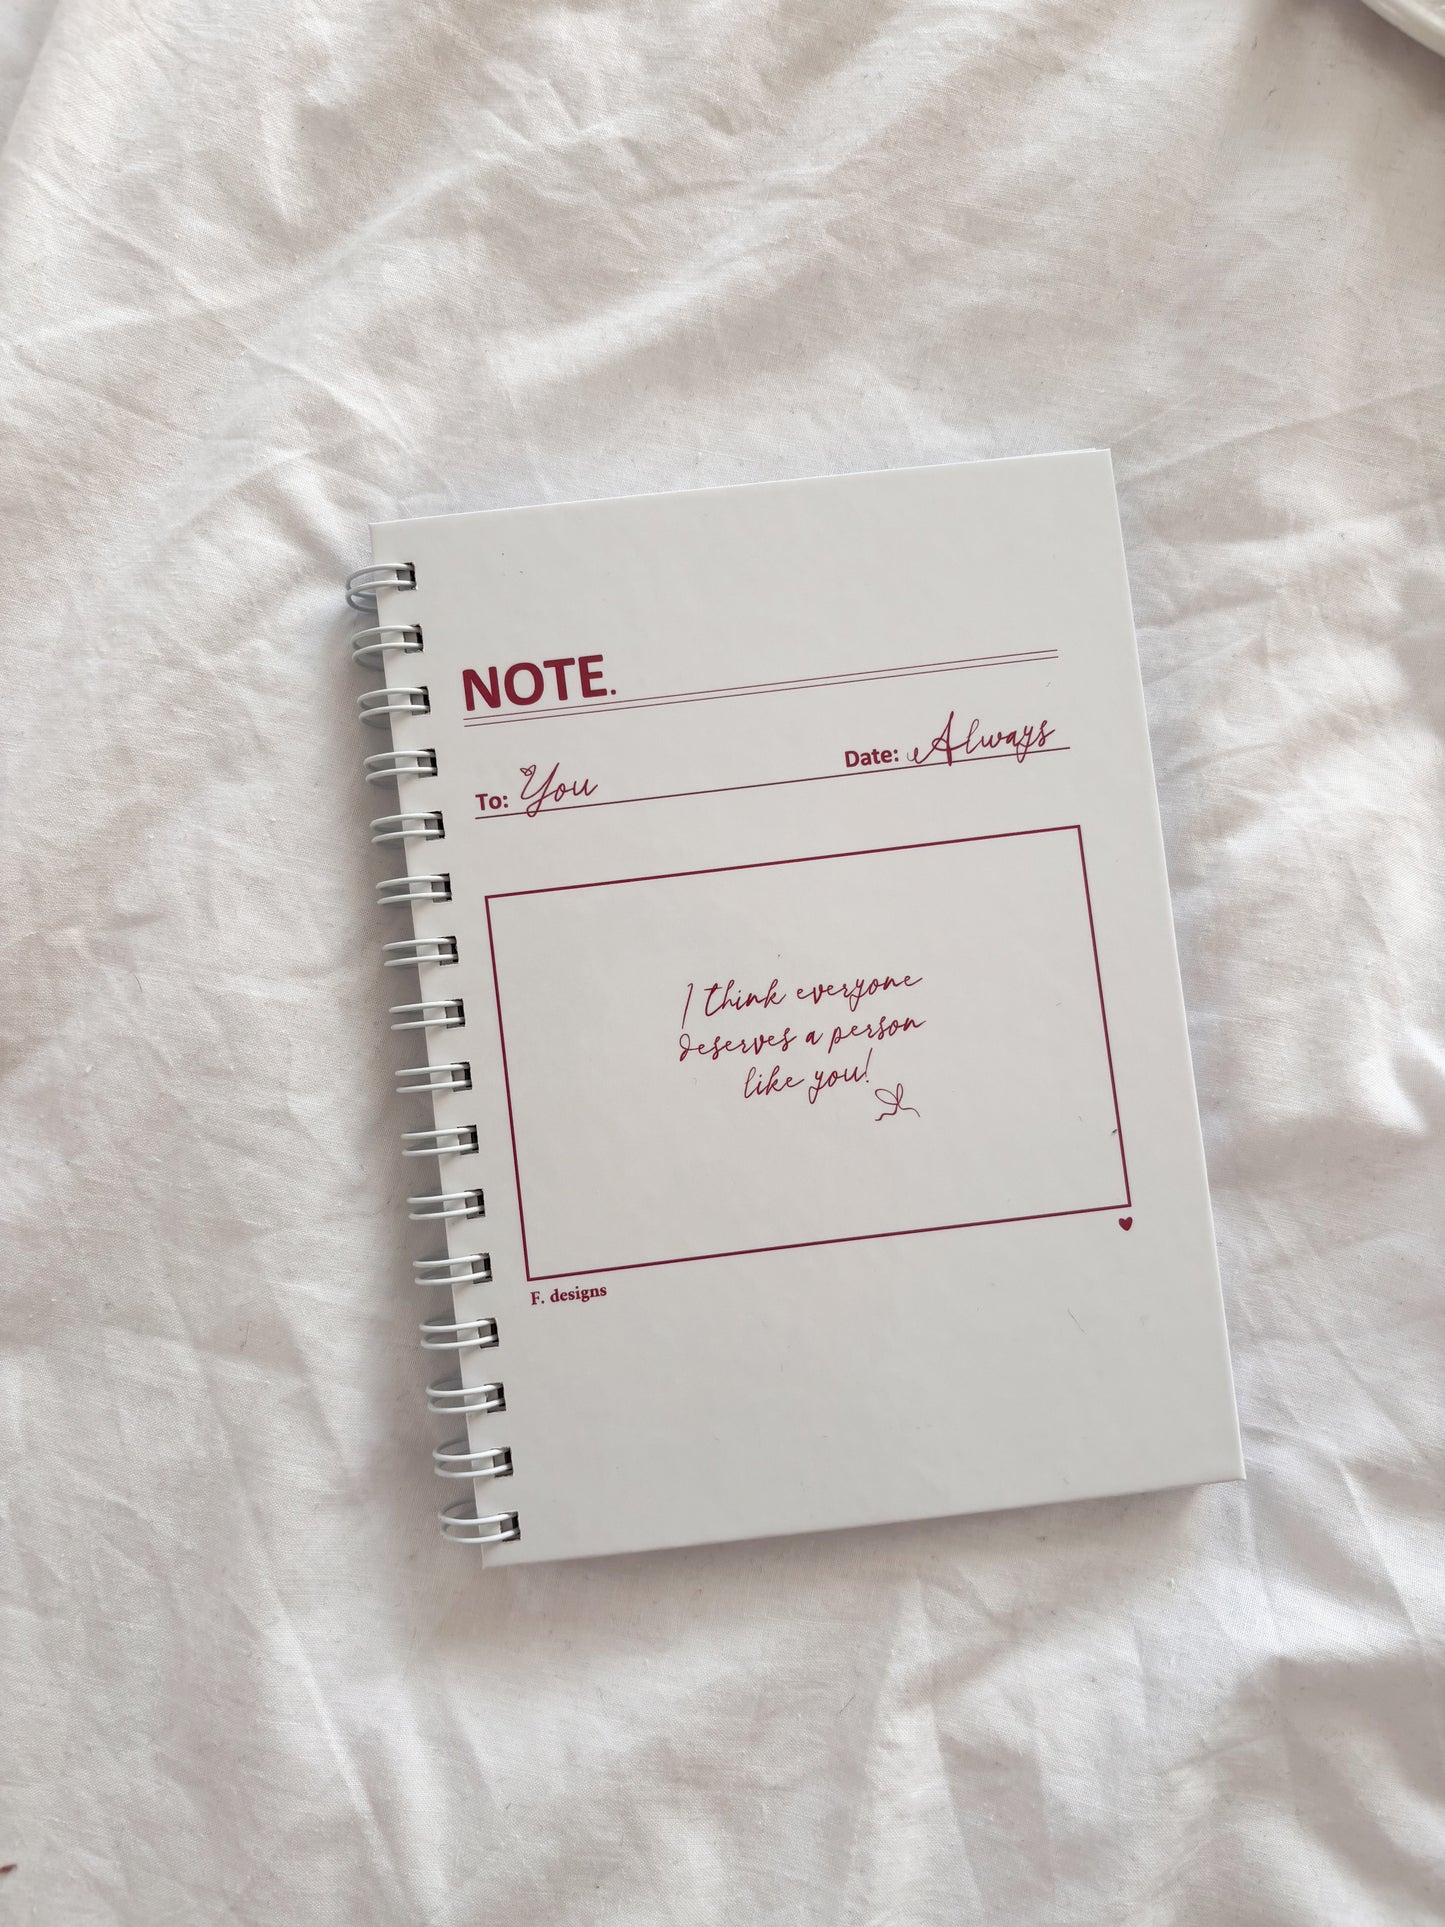 NOTE.
To: You Date: Always
I think everyone
deserves a person
like you!
F. designs